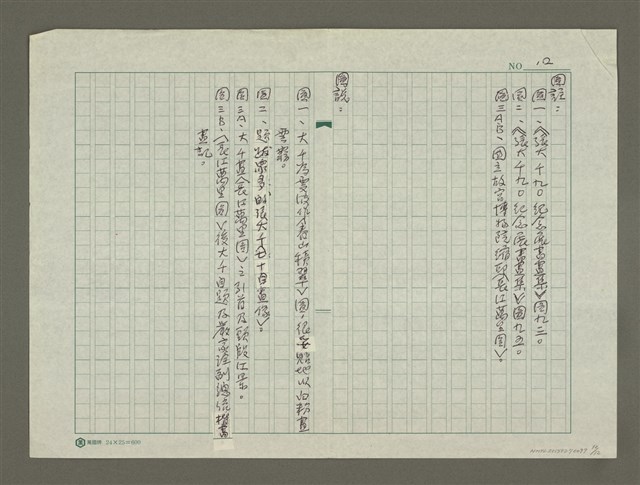 NO 12
圖註：
圖一、《張大千九〇紀念展書畫集》圖九二。
圖二、《張大千九〇紀念展書畫集》圖九五。
圖三AB、國立故宮博物院縮印長江萬里圖》。
圖說：
圖一、大千為雯波作〈春山積翠〉圖，很 賠地以白粉畫
雲霧。
圖二、題 眾多的張大千〈七十自畫像〉。
圖三A、大千畫〈長江萬里圖〉之引首及頭段江景。
圖三B、〈長江萬里圖〉後大千自題及嚴家淦副總統
畫記。
24×25=600